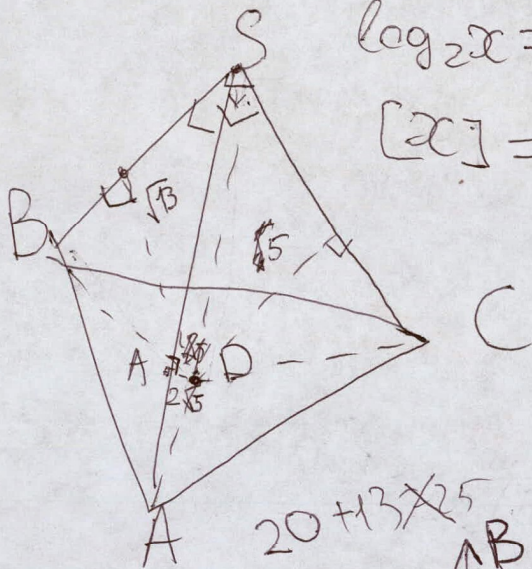 S
log₂x=
[x]=
B
√13
√5
A
D
C
2√5
A
20+13×25
B